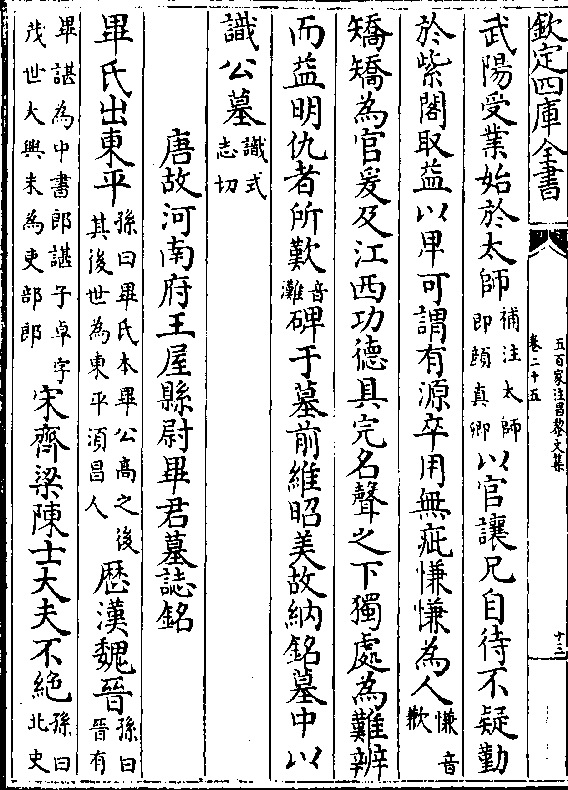 欽定四庫全書
五百家注昌黎文集
卷二十五
十三
武陽受業始於太師補注太師即顔真卿以官讓兄自待不疑勤
於紫閣取益以卑可謂有源卒用無疵慊慊為人慊音歉
矯矯為官爰及江西功德具完名聲之下獨處為難辨
而益明仇者所歎音灘碑于墓前維昭美故納銘墓中以
識公墓識式志切
唐故河南府王屋縣尉畢君墓誌銘
畢氏出東平孫曰畢氏本畢公高之後其後世為東平湏昌人歴漢魏晉孫曰晉有
畢諶為中書郎諶子卓字茂世大興末為吏部郎宋齊梁陳士大夫不絶孫曰北史